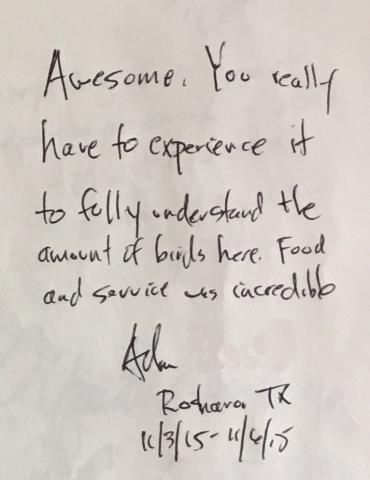 Awesome. You really
have to experience it
to fully understand the
amount of birds here. Food
and service was incredible
Adam
Rosharon TX
11/3/15 - 11/6/15